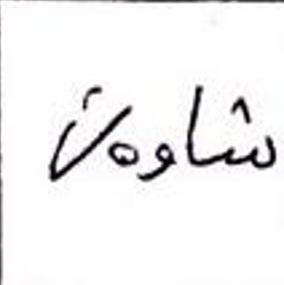 شاوەن